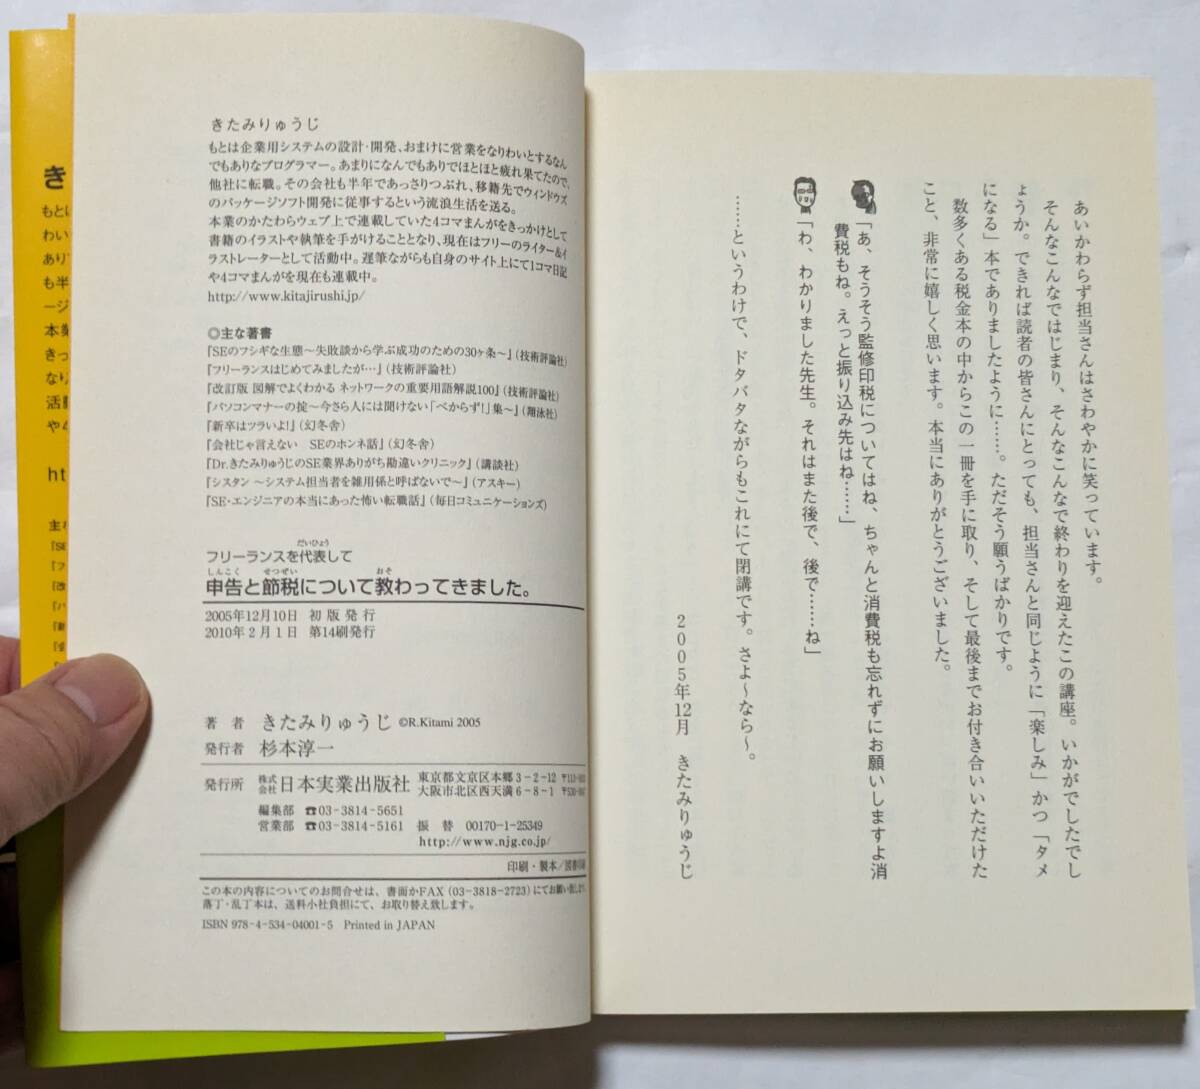 きたみりゅうじ
もとは企業用システムの設計・開発、おまけに営業をなりわいとするなん
でもありなプログラマー。あまりになんでもありでほとほと疲れ果てたので、
他社に転職。その会社も半年であっさりつぶれ、移籍先でウィンドウズ
のパッケージソフト開発に従事するという流浪生活を送る。
本業のかたわらウェブ上で連載していた4コマまんががきっかけとして
書籍のイラストや執筆を手がけることとなり、現在はフリーのライター&イ
ラストレーターとして活動中。遅筆ながらも自身のサイト上にて1コマ日記
や4コマまんがを現在も連載中。
http://www.kitajirushi.jp/
◎主な著書
『SEのフシギな生態～失敗談から学ぶ成功のための30ヶ条～』(技術評論社)
『フリーランスはじめてみましたが…』(技術評論社)
『改訂版 図解でよくわかる ネットワークの重要用語解説100』(技術評論社)
『パソコンマナーの掟～今さら人には聞けない「べからず!」集～』(翔泳社)
『新卒はツラいよ!』(幻冬舎)
『会社じゃ言えない SEのホンネ話』(幻冬舎)
『Dr.きたみりゅうじのSE業界ありがち勘違いクリニック』(講談社)
『シスタン ～システム担当者を雑用係と呼ばないで～』(アスキー)
『SE・エンジニアの本当にあった怖い転職話』(毎日コミュニケーションズ)
だいひょう
フリーランスを代表して
しんこく せつぜい おそ
申告と節税について教わってきました。
2005年12月10日 初版発行
2010年2月1日 第14刷発行
著者 きたみりゅうじ ©R.Kitami 2005
発行者 杉本淳一
発行所 株式会社 日本実業出版社 東京都文京区本郷3-2-12
大阪市北区西天満6-8-1
編集部 ☎03-3814-5651
営業部 ☎03-3814-5161 振替 00170-1-25349
http://www.njg.co.jp/
印刷・製本/図書印刷
この本の内容についてのお問合せは、書面かFAX(03-3818-2723)にてお願い致します。
落丁・乱丁本は、送料小社負担にて、お取り替え致します。
ISBN 978-4-534-04001-5 Printed in JAPAN
あいかわらず担当さんはさわやかに笑っています。
そんなこんなではじまり、そんなこんなで終わりを迎えたこの講座。いかがでしたでし
ょうか。できれば読者の皆さんにとっても、担当さんと同じように「楽しみ」かつ「タメ
になる」本でありましたように……。ただそう願うばかりです。
数多くある税金本の中からこの一冊を手に取り、そして最後までお付き合いいただけた
こと、非常に嬉しく思います。本当にありがとうございました。
「あ、そうそう監修印税についてはね、ちゃんと消費税も忘れずにお願いしますよ消
費税もね。えっと振り込み先はね……」
「わ、わかりました先生。それはまた後で、後で……ね」
……というわけで、ドタバタながらもこれにて閉講です。さよ～なら～。
2005年12月 きたみりゅうじ